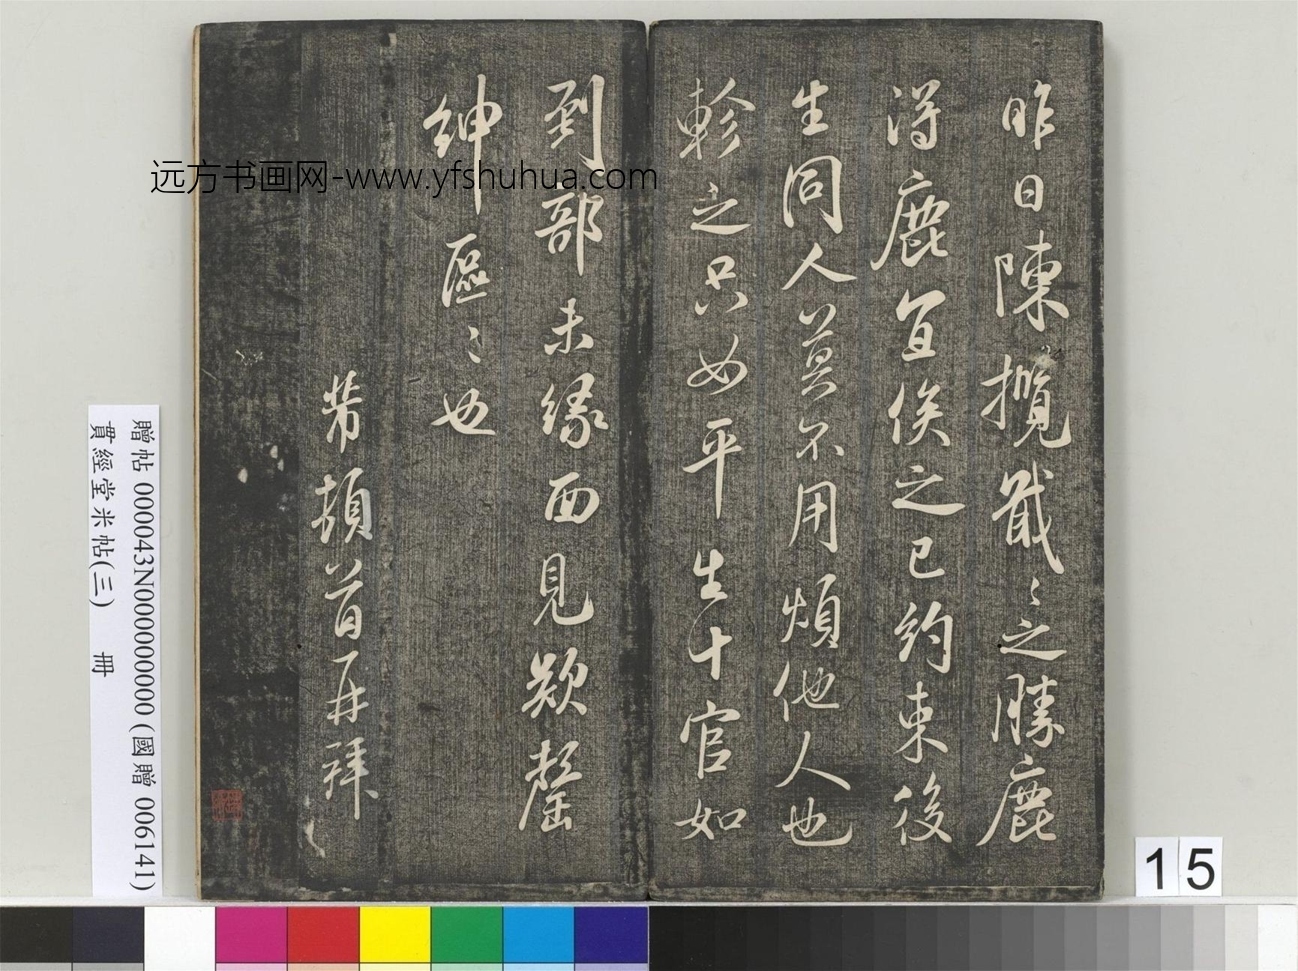 昨日陳攬戢〻之勝鹿
得鹿宜俟之已約束後
生同人莫不用煩他人也
軫之只如平生十官如
到部未緣面見欵罄
紳區〻也
芾頓首再拜
远方书画网-www.yfshuhua.com
贈帖 000043N000000000 (國贈 006141)
貫經堂米帖(三) 冊
15